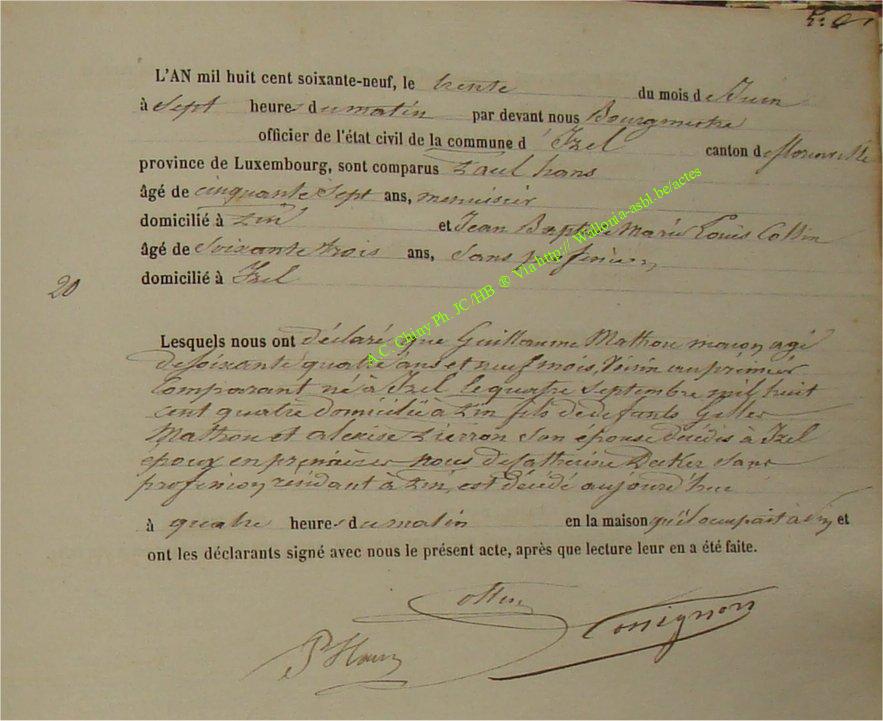 L'AN mil huit cent soixante-neuf, le trente du mois de Juin
à sept heures du matin par devant nous Bourgmestre
officier de l'état civil de la commune d'Izel canton de florenville
province de Luxembourg, sont comparus Paul hans
âgé de cinquante sept ans, menuisier
domicilié à Pin et Jean Baptiste Marie Louis Collin
âgé de soixante trois ans, sans profession
domicilié à Izel
20
Lesquels nous ont déclaré que Guillaume Mathou maçon agé
de soixante quatre ans et neuf mois, Voisin au premier
Comparant né à Izel le quatre septembre mil huit
cent quatre domicilié à Pin fils de defunts Gilles
Mathou et alexise Pierron son épouse décédés à Izel
époux en premières noces de Catherine Decker sans
profession résidant à Pin, est décédé aujourd'hui
à quatre heures du matin en la maison qu'il occupait à Pin et
ont les déclarants signé avec nous le présent acte, après que lecture leur en a été faite.
Collin
Tonignon
P Hans
A.C. Chiny Ph. JC/HB ® Via http:// Wallonia-asbl.be/actes